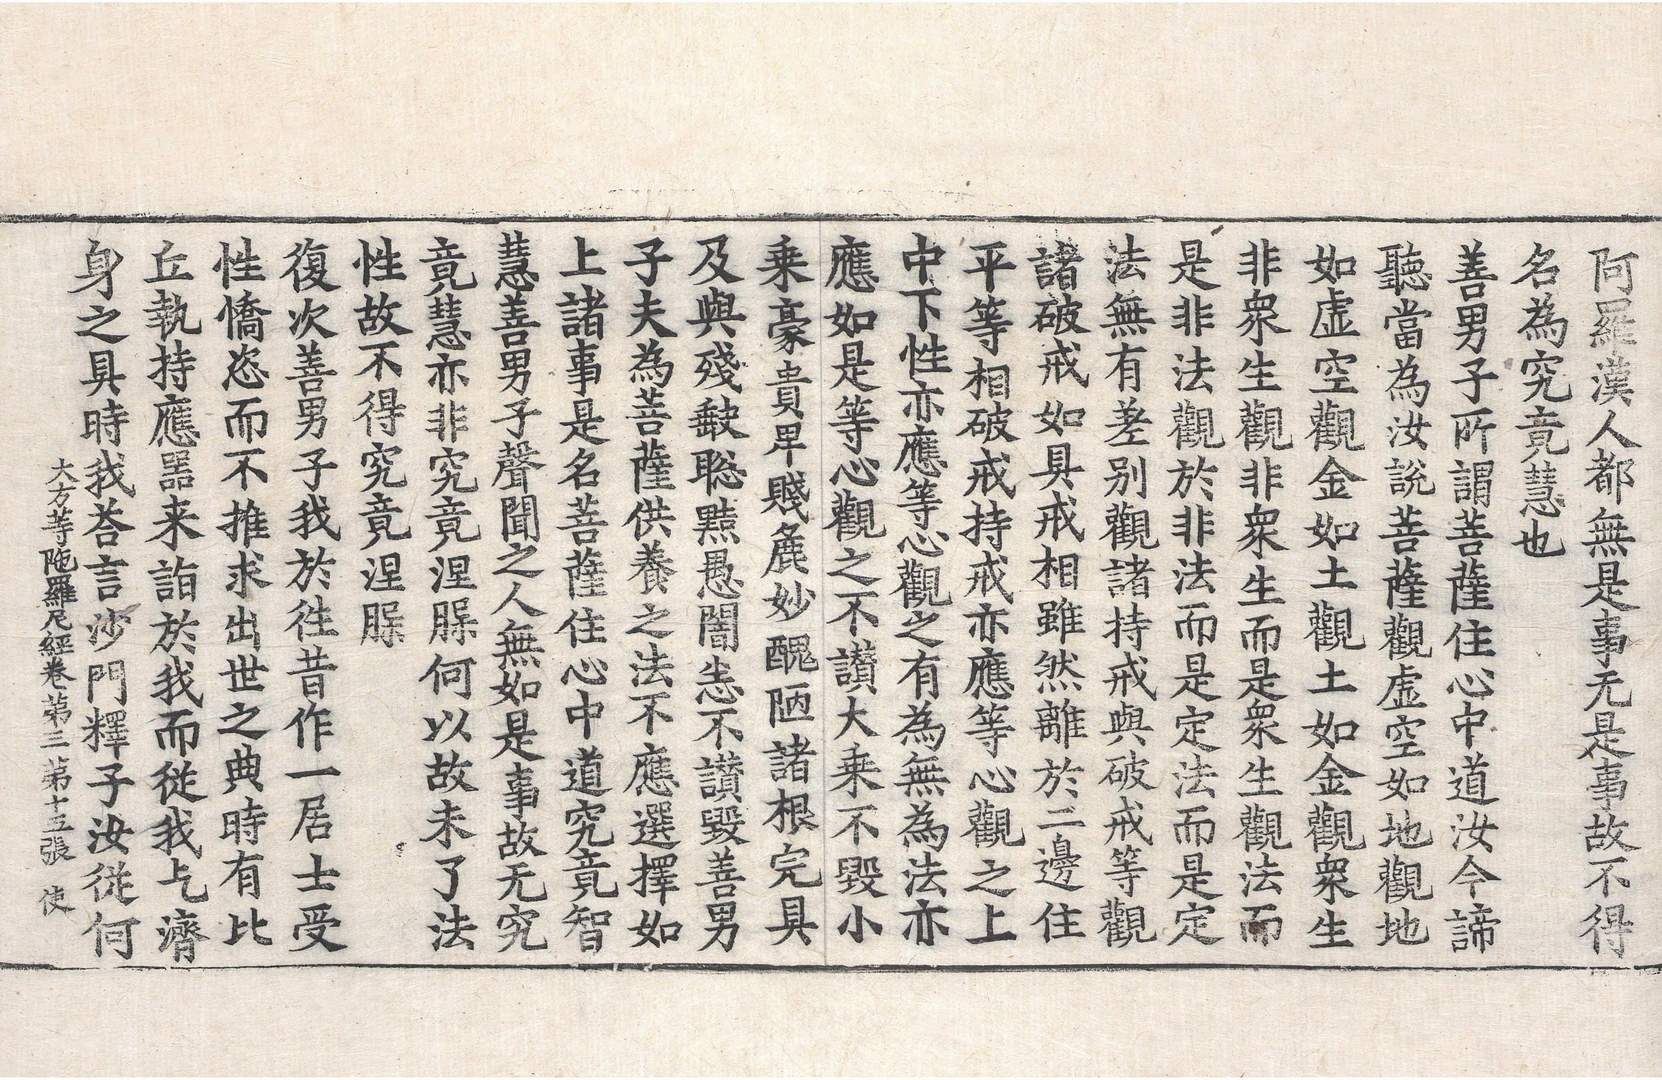 阿羅漢人都無是事无是事故不得
名為究竟慧也
善男子所謂菩薩住心中道汝今諦
聽當為汝說菩薩觀虛空如地觀地
如虛空觀金如土觀土如金觀衆生
非衆生觀非衆生而是衆生觀法而
是非法觀於非法而是定法而是定
法無有差别觀諸持戒與破戒等觀
諸破戒如具戒相雖然離於二邊住
平等相破戒持戒亦應等心觀之上
中下性亦應等心觀之有為無為法亦
應如是等心觀之不讃大乗不毀小
乗豪貴卑賤麁妙醜陋諸根完具
及與殘皾聡黠愚闇恚不讃毀善男
子夫為菩薩供養之法不應選擇如
上諸事是名菩薩住心中道究竟智
慧善男子聲聞之人無如是事故无究
竟慧亦非究竟涅脲何以故未了法
性故不得究竟涅脲
復次善男子我於往昔作一居士受
性憍恣而不推求出世之典時有比
丘執持應噐来詣於我而従我乞濟
身之具時我荅言沙門釋子汝従何
大方等陁羅尼經卷第三 第十五張 使